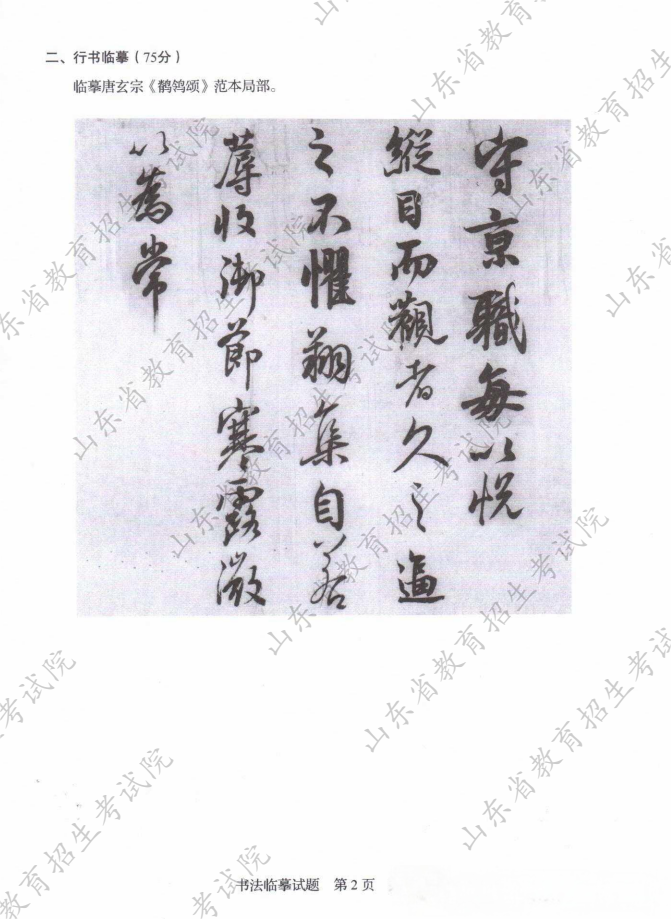 二、行书临摹（75分）
临摹唐玄宗《鹡鸰颂》范本局部。
守京職每以悦
縱目而觀者久之逼
之不懼翔集自若
蓐收御節寒露微
以爲常
书法临摹试题 第2页
山东省教育招生考试院